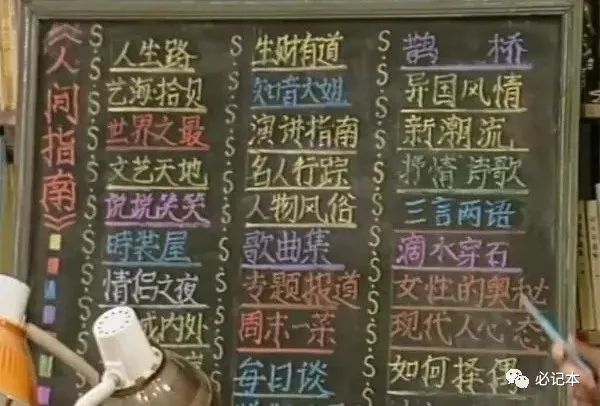 《人间指南》
人生路
艺海拾贝
世界之最
文艺天地
说说笑笑
時装屋
情侣之夜
域内外
生财有道
知音大姐
演讲指南
名人行踪
人物风俗
歌曲集
专题报道
周末一菜
每日谈
鹊桥
异国风情
新潮流
抒情诗歌
三言两语
滴水穿石
女性的奥秘
现代人心态
如何择偶
必记本